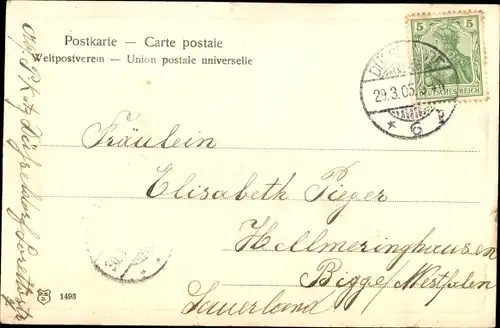 Postkarte — Carte postale
Weltpostverein — Union postale universelle
5 5
DEUTSCHES REICH
29.3.05.
* 6 b
Fräulein
Elisabeth Pieper
Hellmeringhausen
Bigge/Westfalen
Sauerland
1493